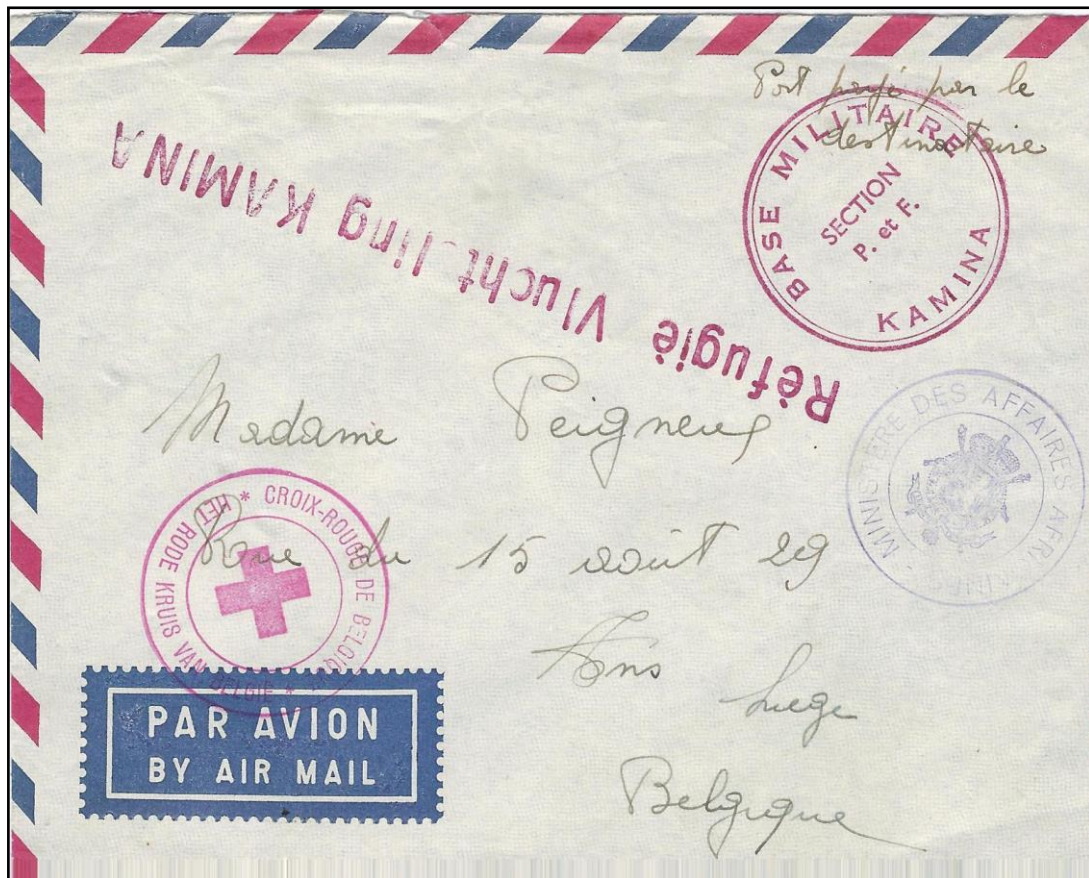 Port payé par le
destinataire
BASE MILITAIRE
KAMINA
SECTION
P. et F.
Rèfugiè Vlucht.ling KAMINA
MINISTÈRE DES AFFAIRES
Madame Peigneux
Rue du 15 août 29
Ans
Liege
Belgique
CROIX-ROUGE DE BELGIQUE
HET RODE KRUIS VAN BELGIË
PAR AVION
BY AIR MAIL